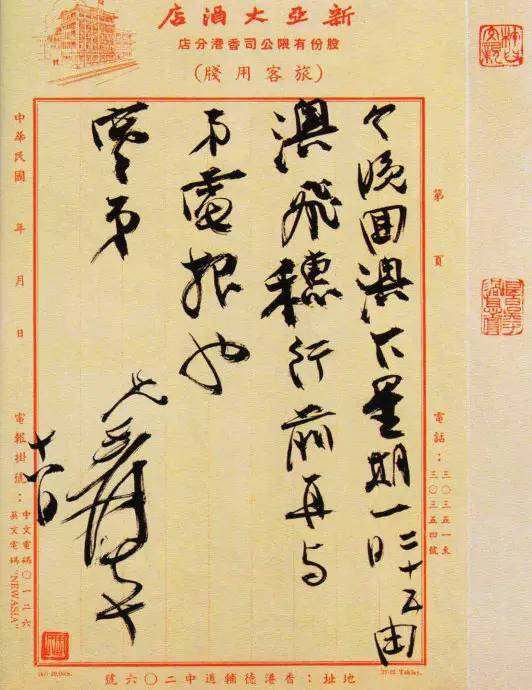 新亞大酒店
股份有限公司香港分店
(旅客用牋)
第 頁
電話：三〇三五一至三〇三五四號
今晚囬澳下星期一日二十五由
澳飛穗行前再与
弟電報也
弟
兄爰大千
中華民國 年 月 日
電報掛號：中文電碼〇一二六
英文電碼"NEWASIA"
地址：香港德輔道中二〇六號